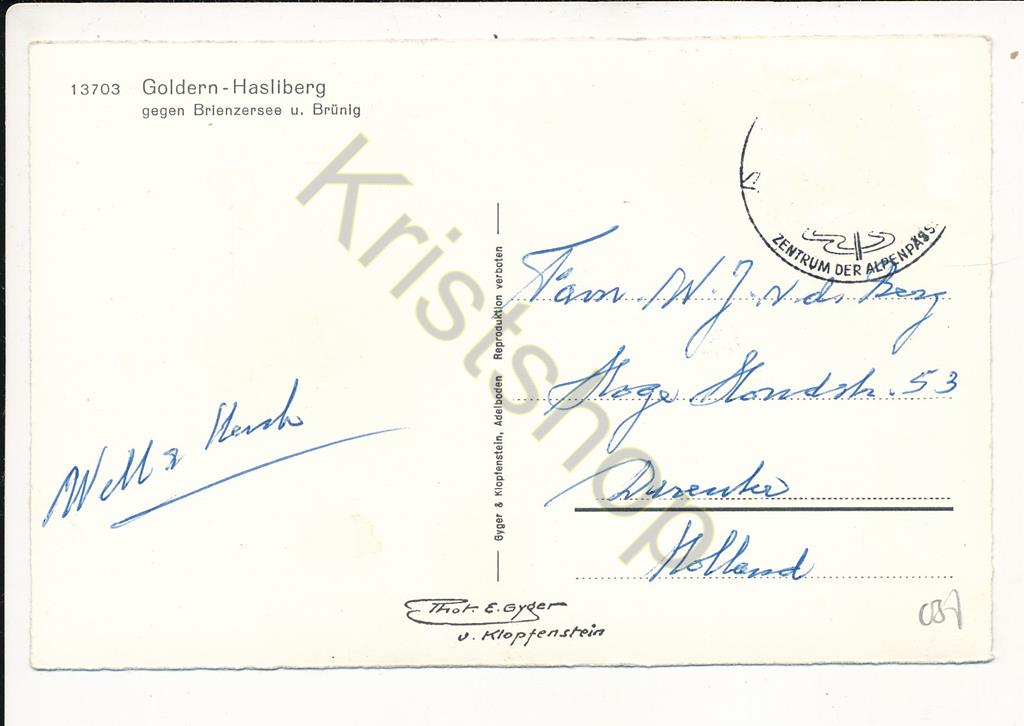 13703 Goldern-Hasliberg
gegen Brienzersee u. Brünig
ZENTRUM DER ALPENPÄSS
Fam. W. J. v. d. Berg
Hoge Hondstr. 53
Deventer
Holland
Gyger & Klopfenstein, Adelboden Reproduktion verboten
Phot. E. Gyger
u. Klopfenstein
Kristshop